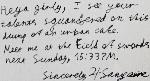 Heya girly, I see your
talents squandered on this
dump of an urban cake.
Meet me at the Field of swords
near Sunday, 15:33PM.
Sincerely, Sangwine